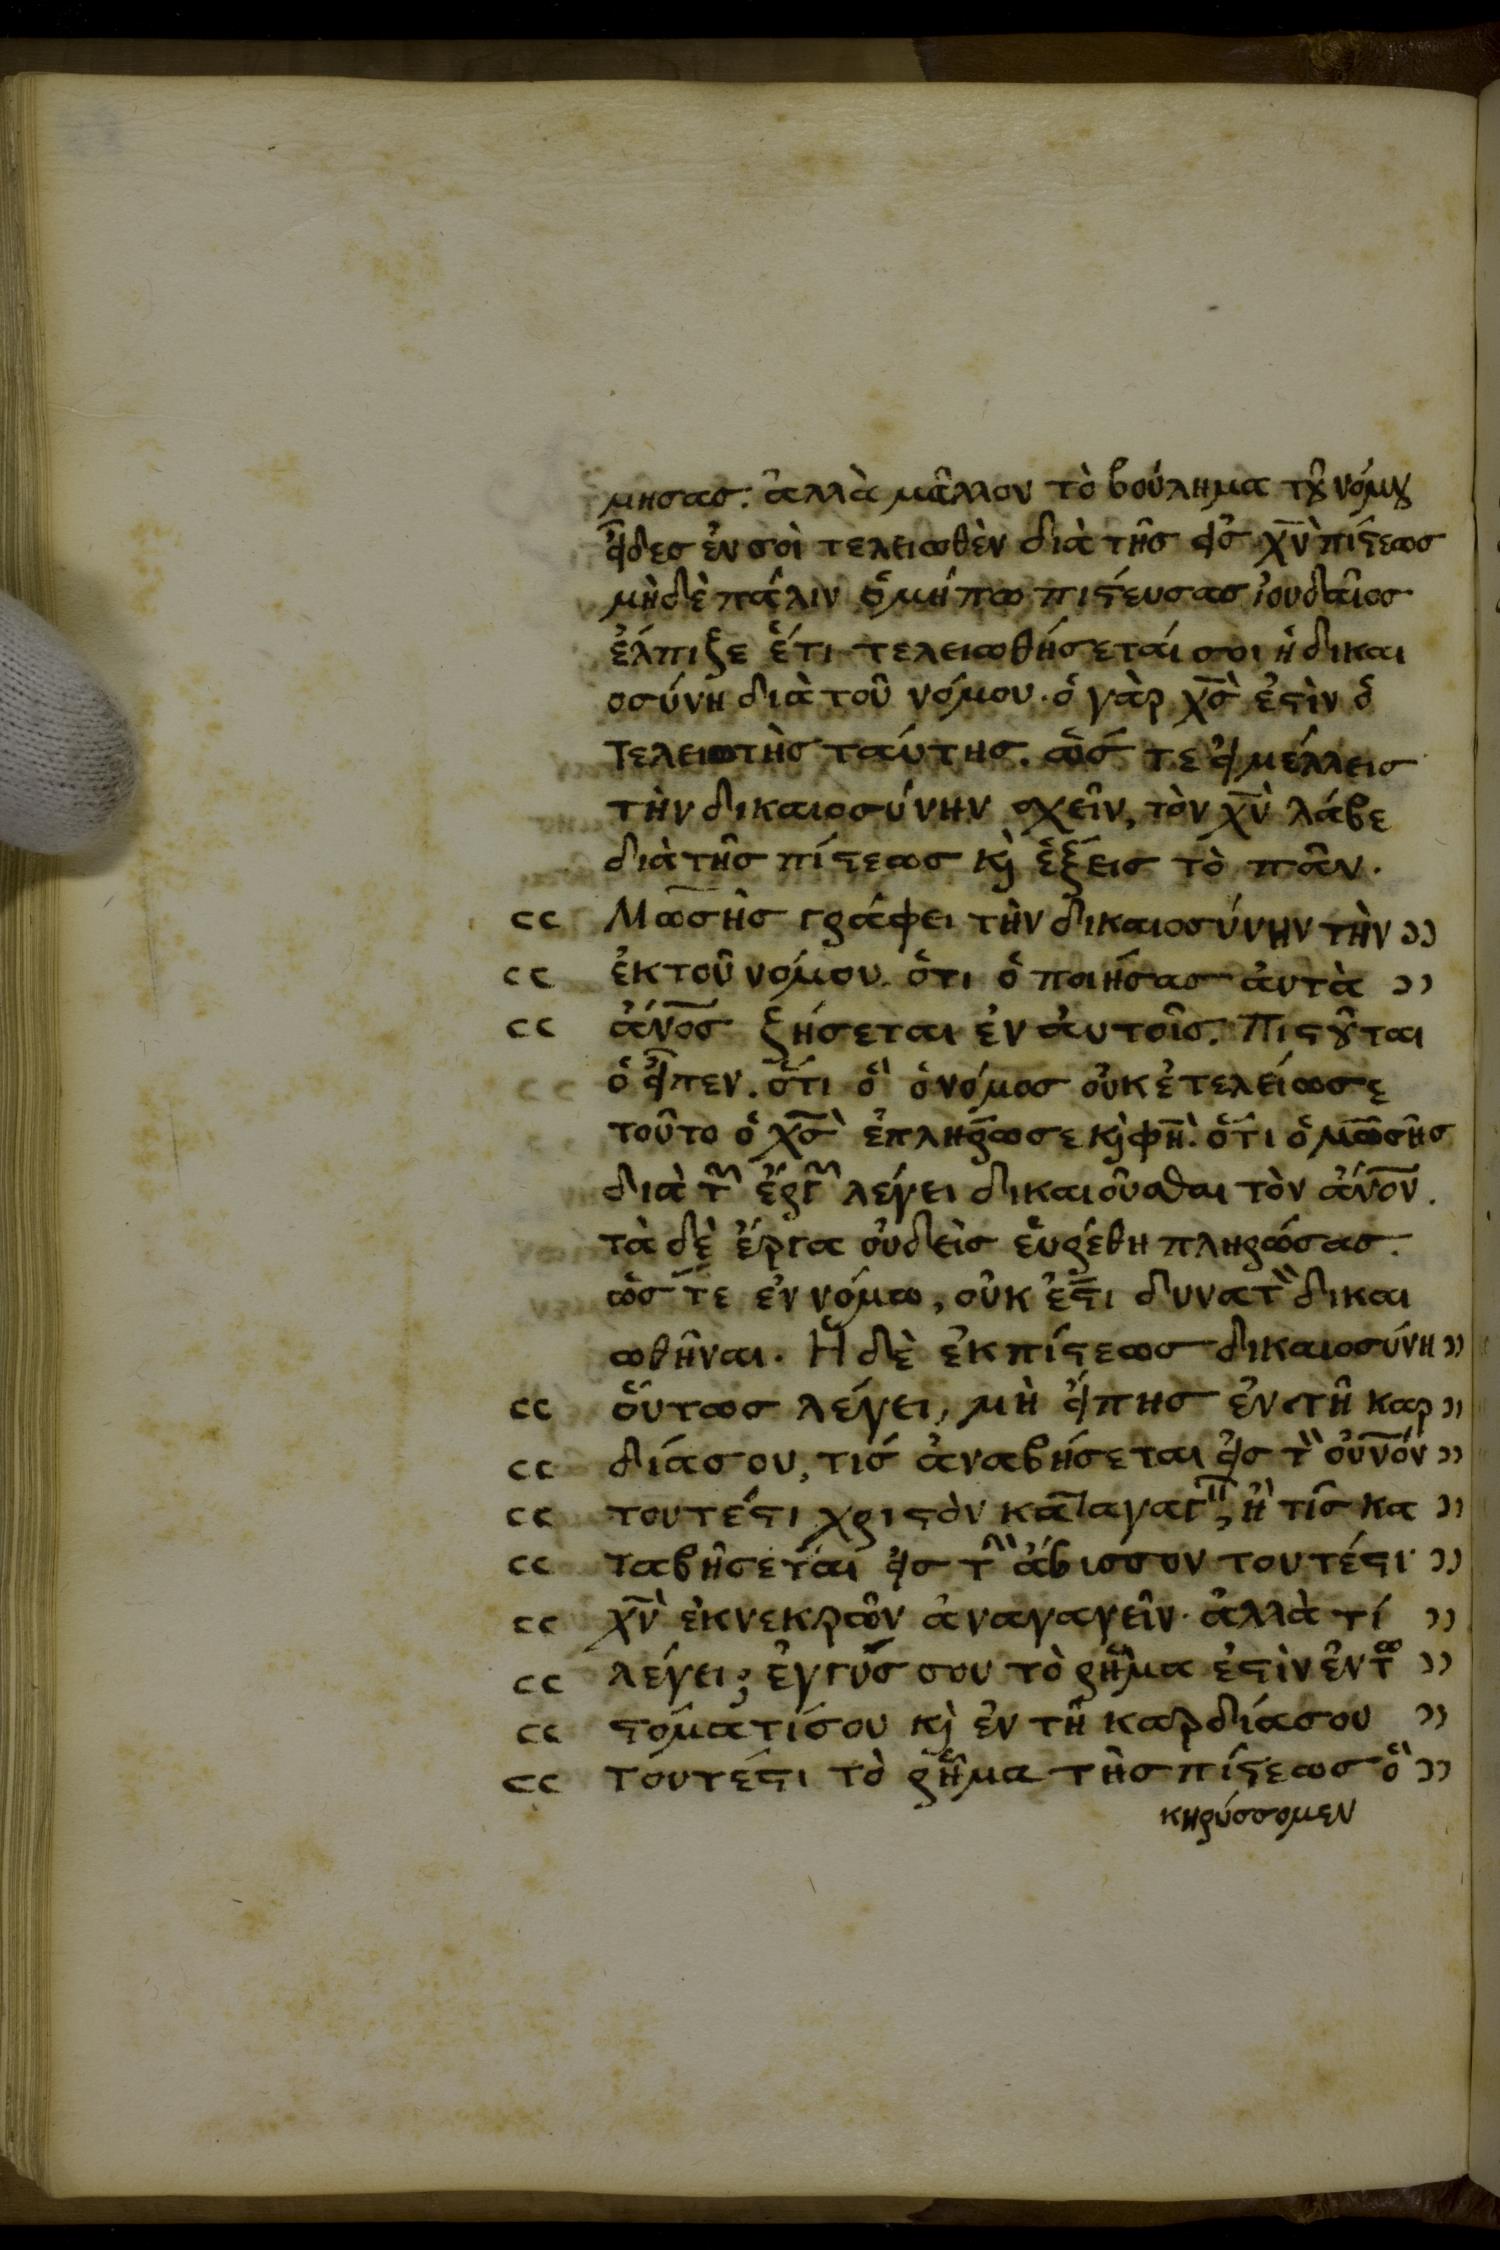 μησας. ἀλλὰ μᾶλλον τὸ βούλημα τȣ͂ νόμȣ
εἶδες ἐν σοὶ τελειωθὲν διὰ τῆς εἰς χν̅ πίϛεως
μὴ δὲ πάλιν ὁ μήπω πιϛεύσας ἰουδαῖος
ἔλπιζε ἔτι τελειωθήσεταί σοι ἡ δικαι
οσύνη διὰ τοῦ νόμου. ὁ γὰρ χς̅ ἐϛὶν ὁ
τελειωτὴς ταύτης. ὥς τε εἰ μέλλεις
τὴν δικαιοσύνην σχεῖν, τὸν χν̅ λάβε
διὰ τῆς πίϛεως κὶ ἕξεις τὸ πᾶν.
cc Μωσῆς γράφει τὴν δικαιοσύνην τὴν ))
cc ἐκ τοῦ νόμου. ὅτι ὁ ποιήσας ἀυτὰ ))
cc ἄνο̅ς ζήσεται ἐν ἀυτοῖς. Πιϛȣ͂ται
ὃ εἶπεν. ὅτι ὃ ὁ νόμος οὐκ ἐτελείωσε
τοῦτο ὁ χς̅ ἐπλήρωσε κὶ φη̅. ὅτι ὁ μωσῆς
διὰ τῶν ἔργων λέγει δικαιοῦσθαι τὸν ἄνο̅ν.
τὰ δὲ ἔργα οὐδεὶς εὑρέθη πληρώσας.
ὥς τε ἐν νόμω, οὐκ ἔϛι δυνατὸν δικαι
ωθῆναι. Ἡ δὲ ἐκ πίϛεως δικαιοσύνη ))
cc ὅυτως λέγει, μὴ εἴπης ἐν τῆ καρ ))
cc δία σου, τίς ἀναβήσεται εἰς τὸν οὐνο̅ν ))
cc τουτέϛι χριϛὸν καταγαγεῖν, ἢ τίς κα ))
cc ταβήσεται εἰς τὴν ἄβισσον τουτέϛι ))
cc χν̅ ἐκ νεκρῶν ἀναγαγεῖν. ἀλλὰ τί ))
cc λέγει; ἐγγύς σου τὸ ῥῆμα ἐϛὶν ἐν τῶ ))
cc ϛόματί σου κὶ ἐν τῆ καρδία σου ))
cc τουτέϛι τὸ ῥῆμα τῆς πίϛεως ὃ ))
κηρύσσομεν